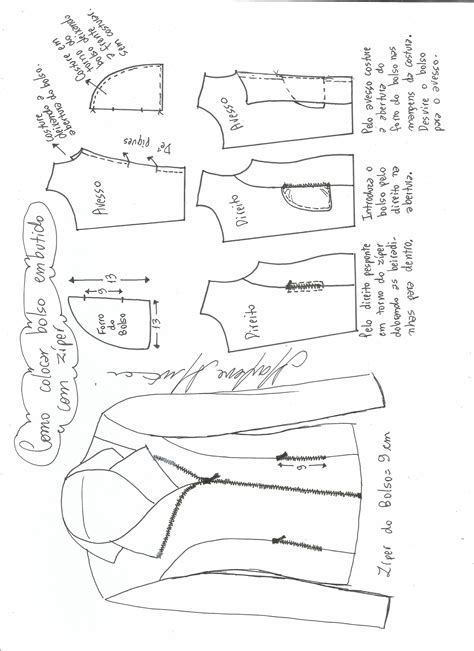 Como colocar bolso embutido
com zíper
Costure a
deixando a
abertura do bolso.
Costure em
torno do
bolso deixando
a frente
sem costurar.
Avesso
Piques
9
13
Forro
do
Bolso
13
Direito
Direito
Avesso
Pelo direito pesponte
em torno do zíper
dobrando as beiradi-
nhas para dentro.
Introduza o
bolso pelo
direito na
abertura.
Pelo avesso costure
a abertura do
forro do bolso nas
margens da costura.
Desvire o bolso
para o avesso.
Marlene Mukai
9
Zíper do Bolso = 9 cm